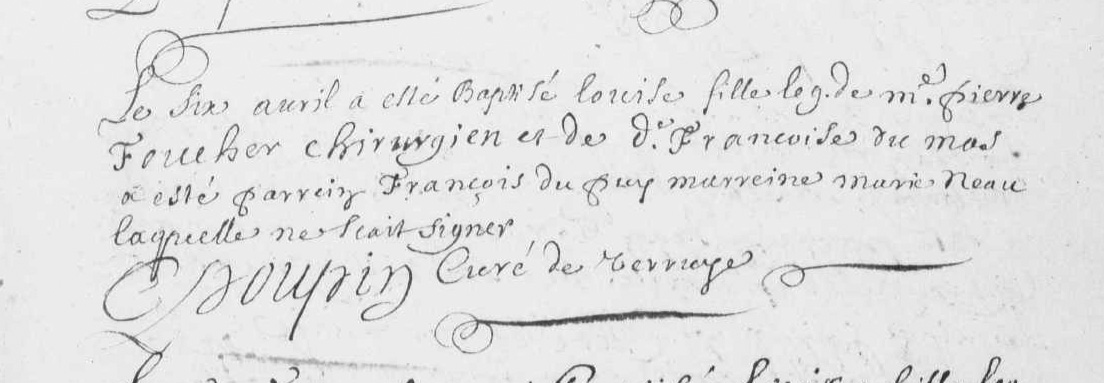 Le six auril a esté Baptisé louise fille leg. de me. pierre
Foucher chirurgien et de de. Francoise du mas
a esté parrein François du puy marreine marie Neau
laquelle ne scait signer
Curé de verruye